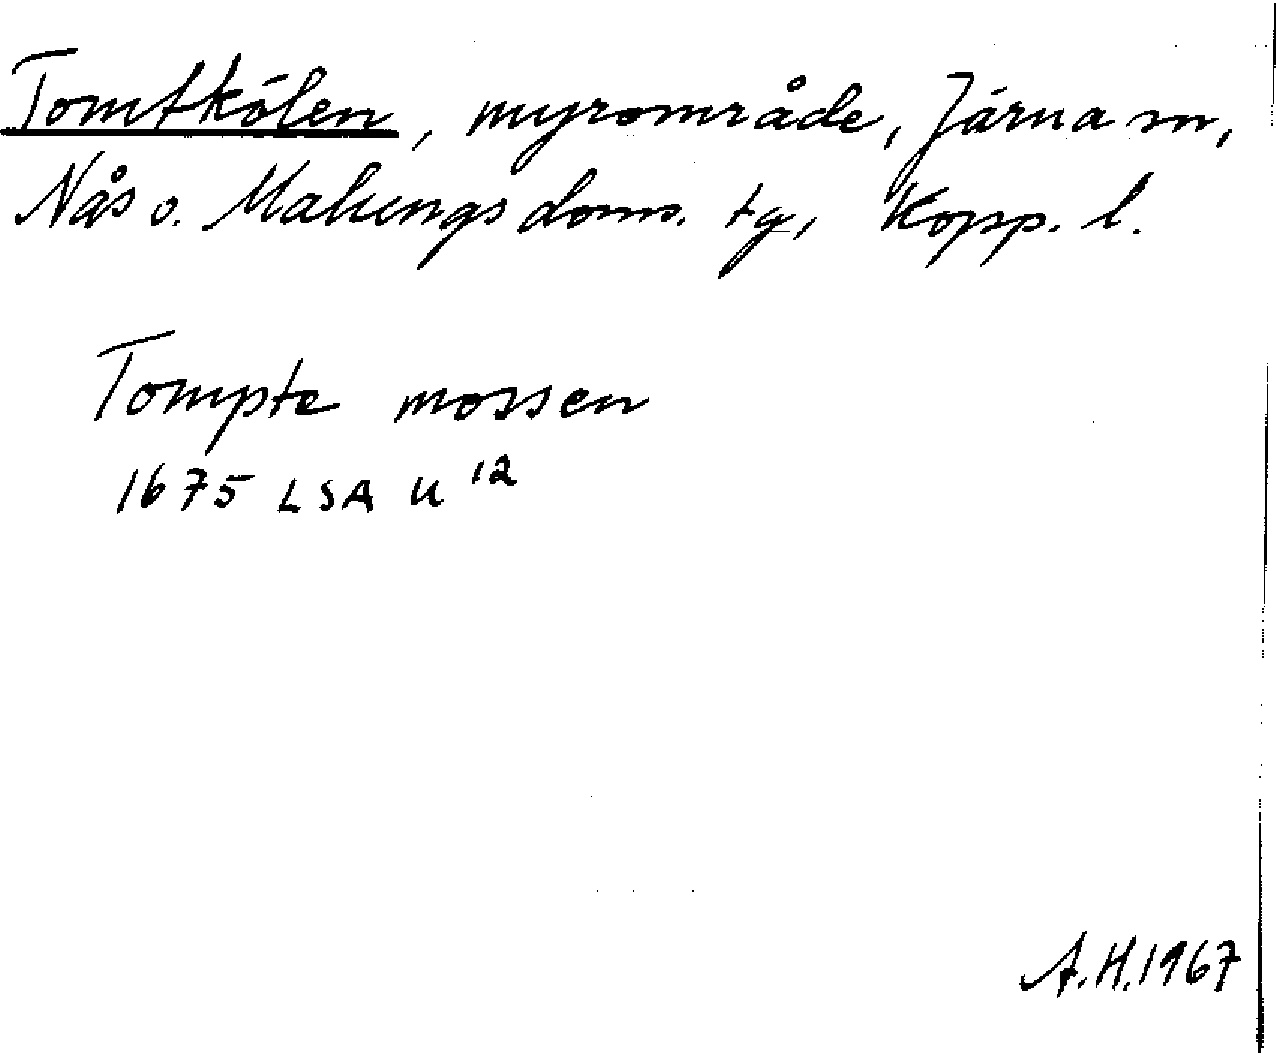 Tomtkölen, myrområde, Järna sn,
Nås o. Malungs doms. tg, Kopp. l.
Tompte mossen
1675 LSA U 12
A.H.1967